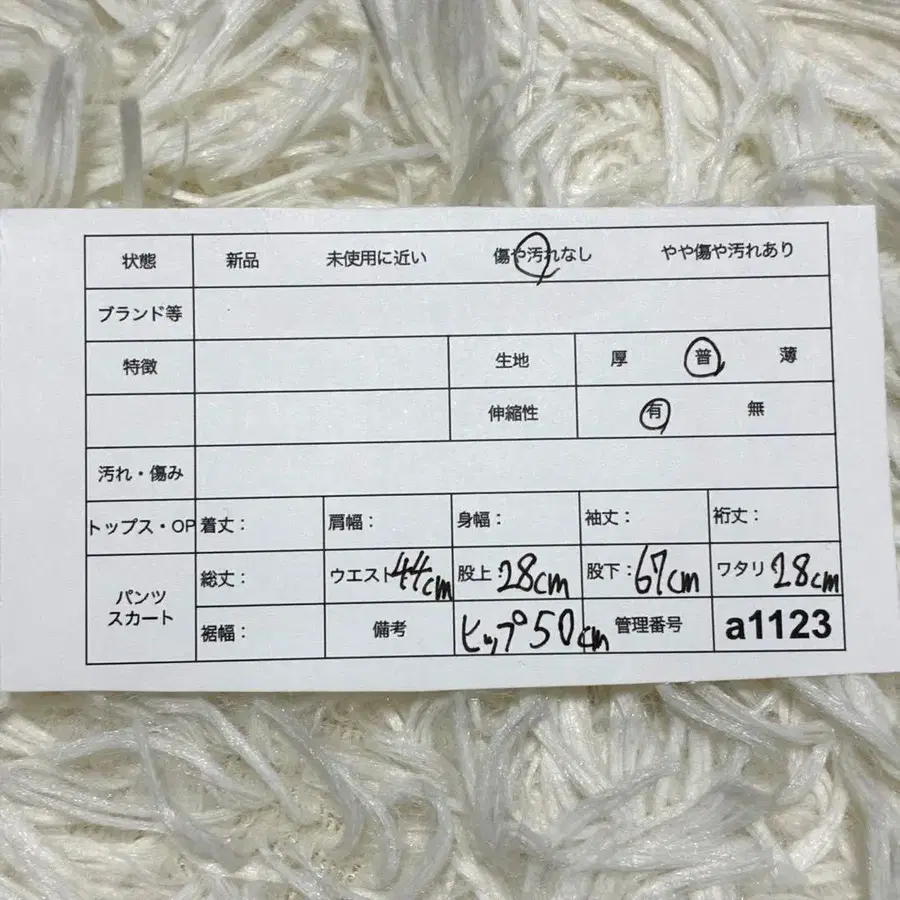 状態 新品 未使用に近い 傷や汚れなし やや傷や汚れあり
ブランド等
特徴 生地 厚 普 薄
伸縮性 有 無
汚れ・傷み
トップス・OP 着丈： 肩幅： 身幅： 袖丈： 裄丈：
パンツ スカート
総丈： ウエスト44cm 股上：28cm 股下：67cm ワタリ28cm
裾幅： 備考 ヒップ50cm 管理番号 a1123